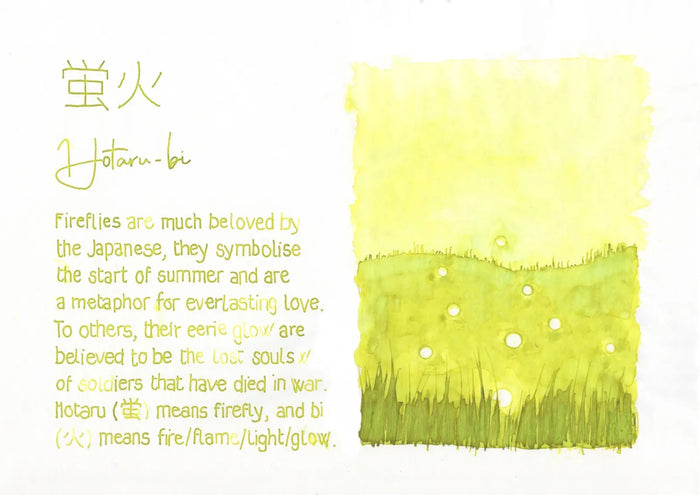 蛍火
Hotaru-bi
Fireflies are much beloved by
the Japanese, they symbolise
the start of summer and are
a metaphor for everlasting love.
To others, their eerie glow are
believed to be the lost souls
of soldiers that have died in war.
Hotaru (蛍) means firefly, and bi
(火) means fire/flame/light/glow.